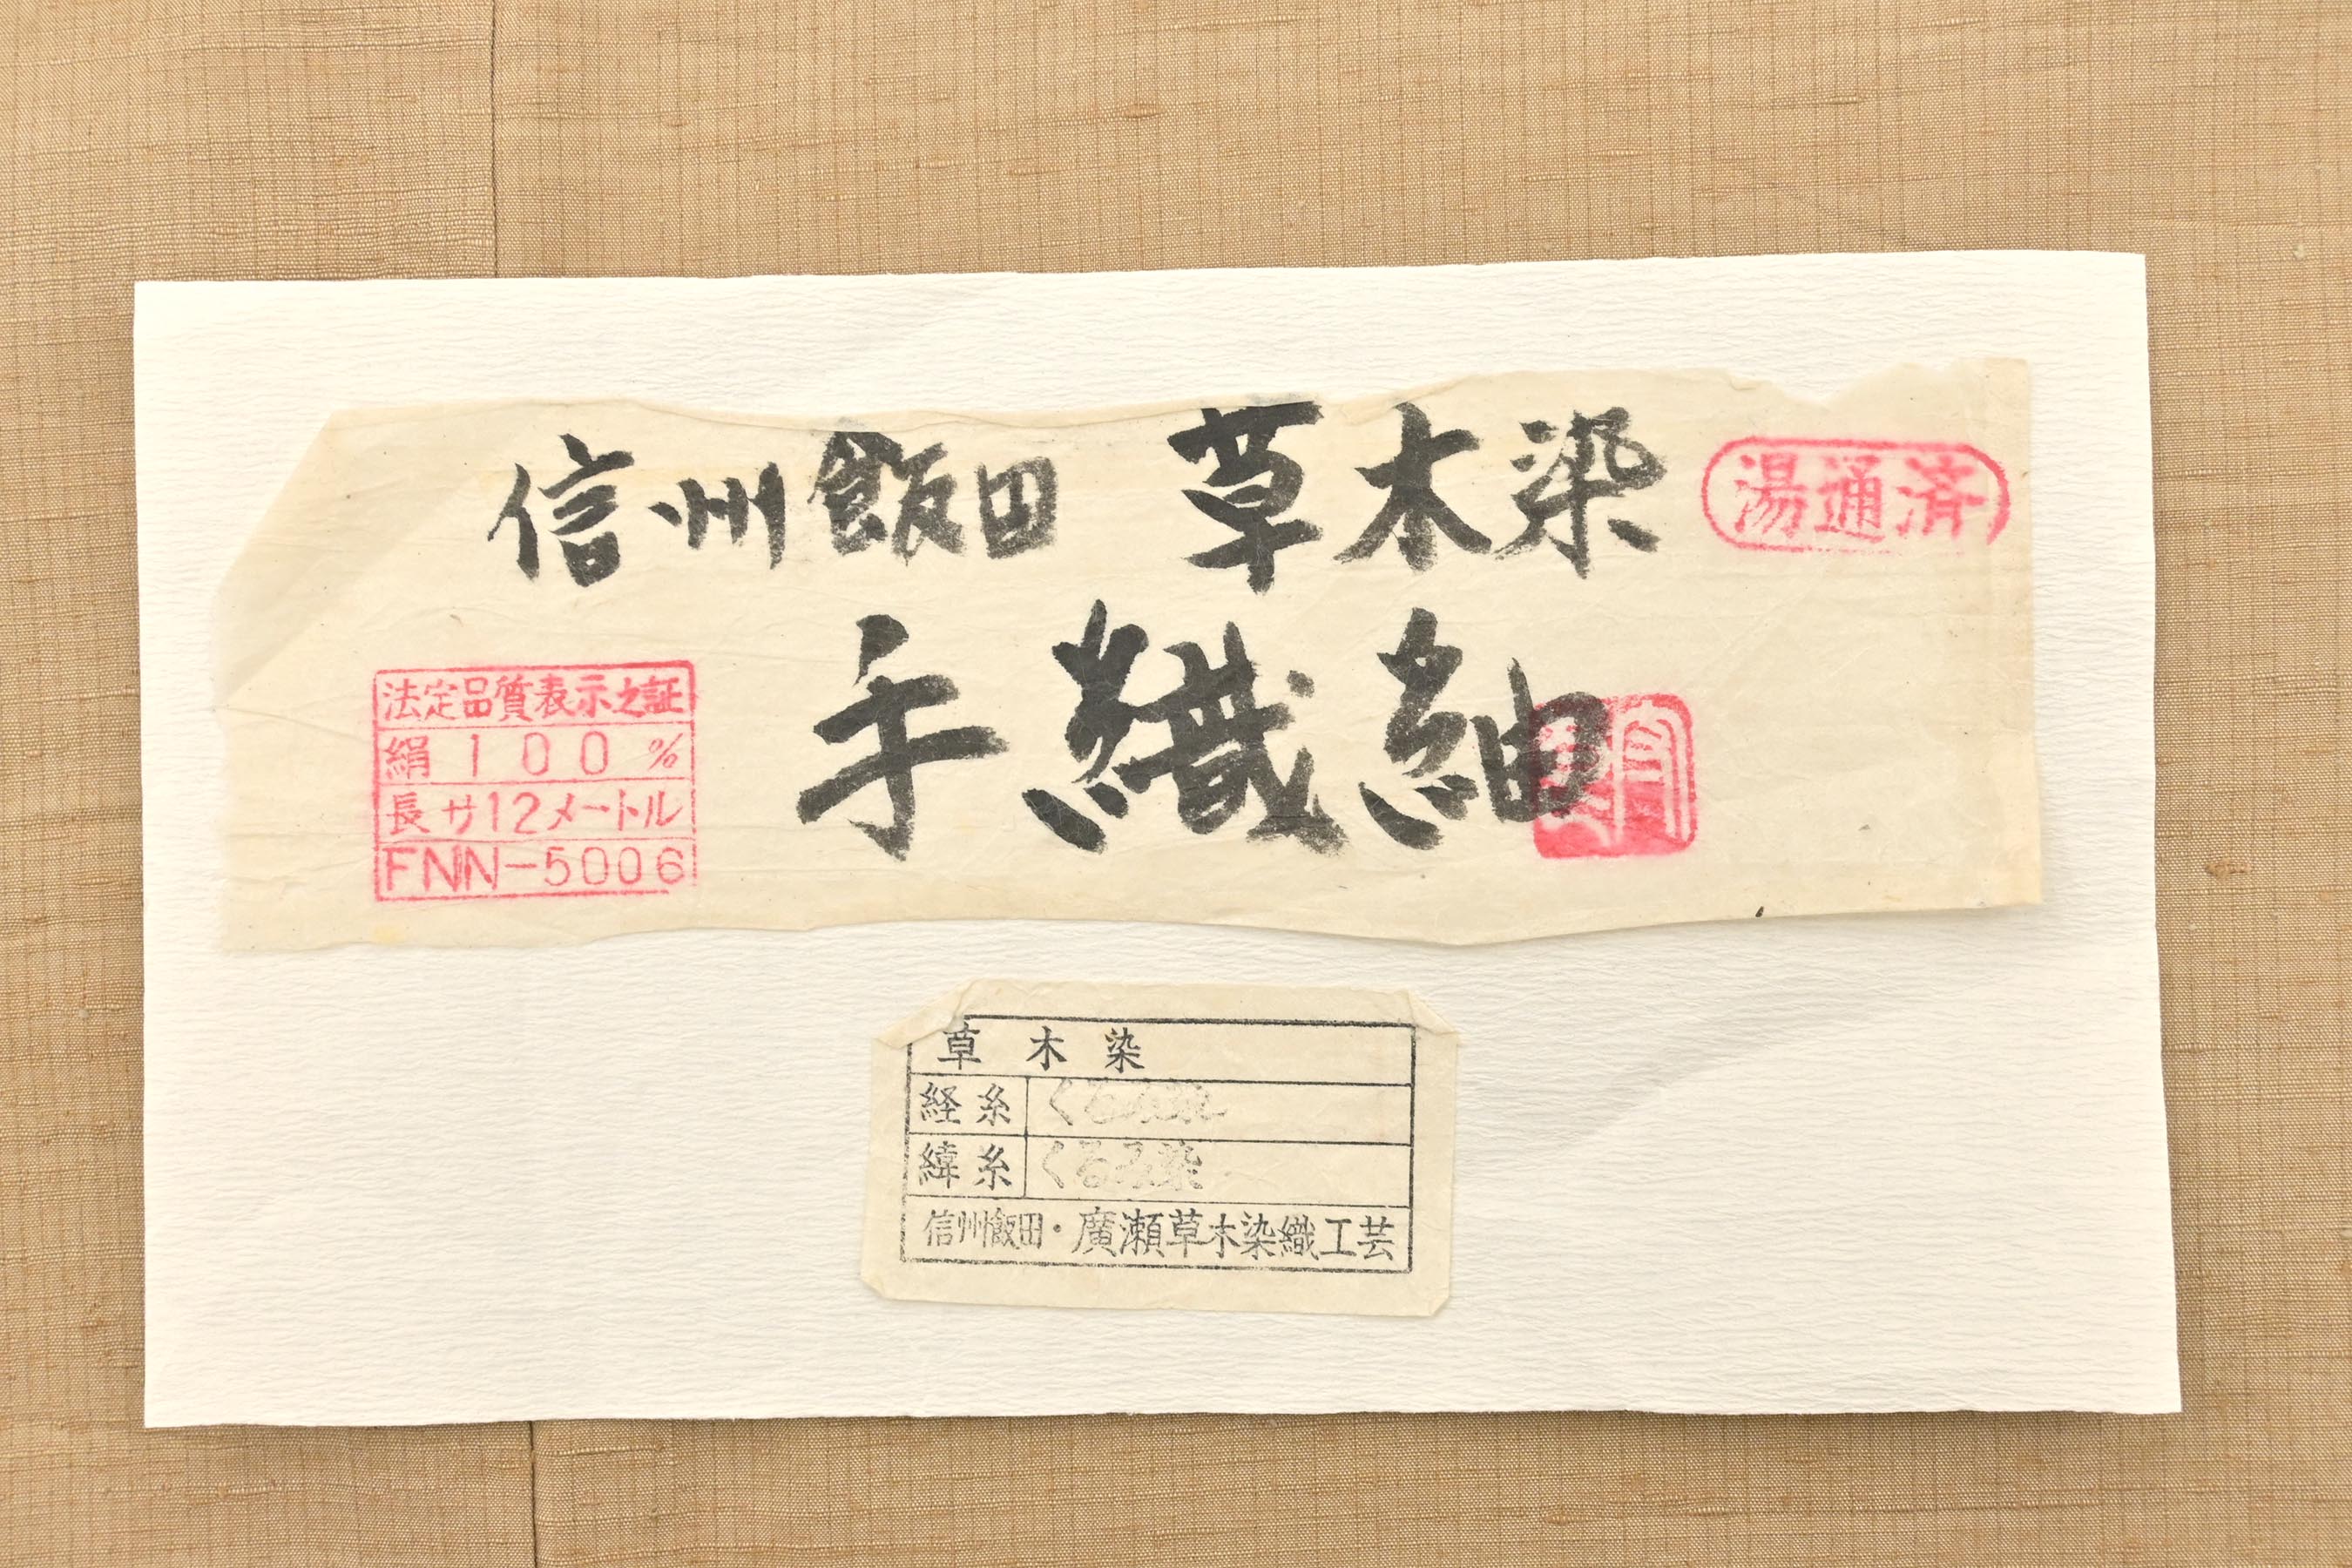 信州飯田 草木染
湯通済
手織紬
法定品質表示之証
絹100%
長サ12メートル
FNN-5006
草木染
経糸 くるみ染
緯糸 くるみ染
信州飯田・廣瀬草木染織工芸